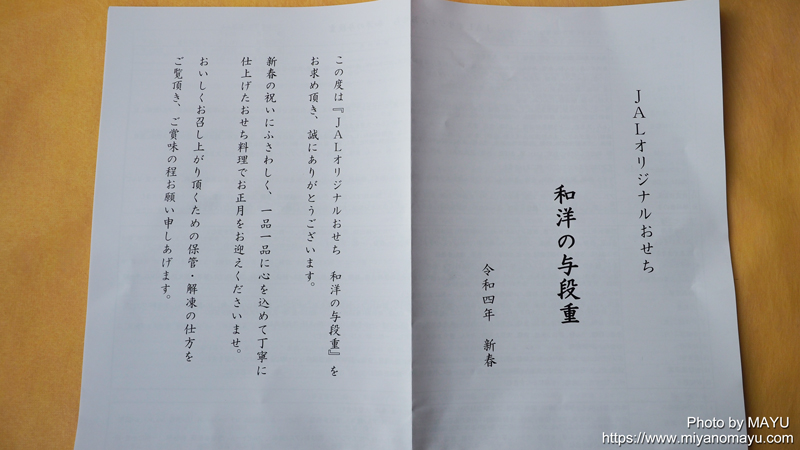 JALオリジナルおせち
和洋の与段重
令和四年 新春
この度は『JALオリジナルおせち 和洋の与段重』を
お求め頂き、誠にありがとうございます。
新春の祝いにふさわしく、一品一品に心を込めて丁寧に
仕上げたおせち料理でお正月をお迎えくださいませ。
おいしくお召し上がり頂くための保管・解凍の仕方を
ご覧頂き、ご賞味の程お願い申しあげます。
Photo by MAYU
https://www.miyanomayu.com/